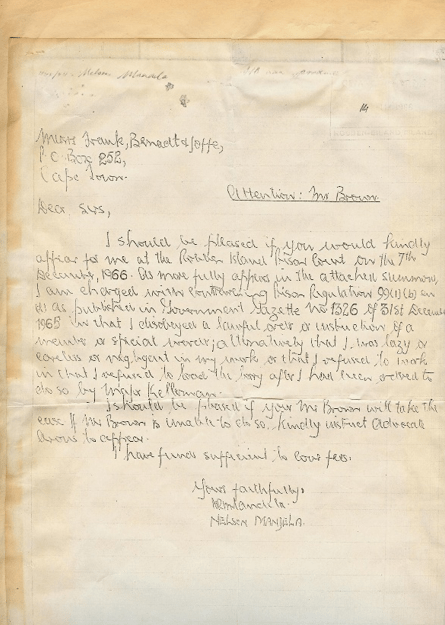 Nelson Mandela
14
Messrs Frank, Bernadt & Joffe,
P.O. Box 252,
Cape Town.
Attention: Mr Brown
Dear Sirs,
I should be pleased if you would kindly
appear for me at the Robben Island Prison Court on the 7th
December, 1966. As more fully appears in the attached summons,
I am charged with contravening Prison Regulation 99(1)(b) and
d) as published in Government Gazette No 1326 of 31st December
1965 in that I disobeyed a lawful order or instruction of a
member or special warder; alternatively that I was lazy or
careless or negligent in my work, or that I refused to work
in that I refused to load the lorry after I had been ordered to
do so by Major Kellerman.
I should be pleased if your Mr Brown will take the
case. If Mr Brown is unable to do so, kindly instruct Advocate
to appear.
I have funds sufficient to cover fees.
Yours faithfully,
NRMandela.
NELSON MANDELA.